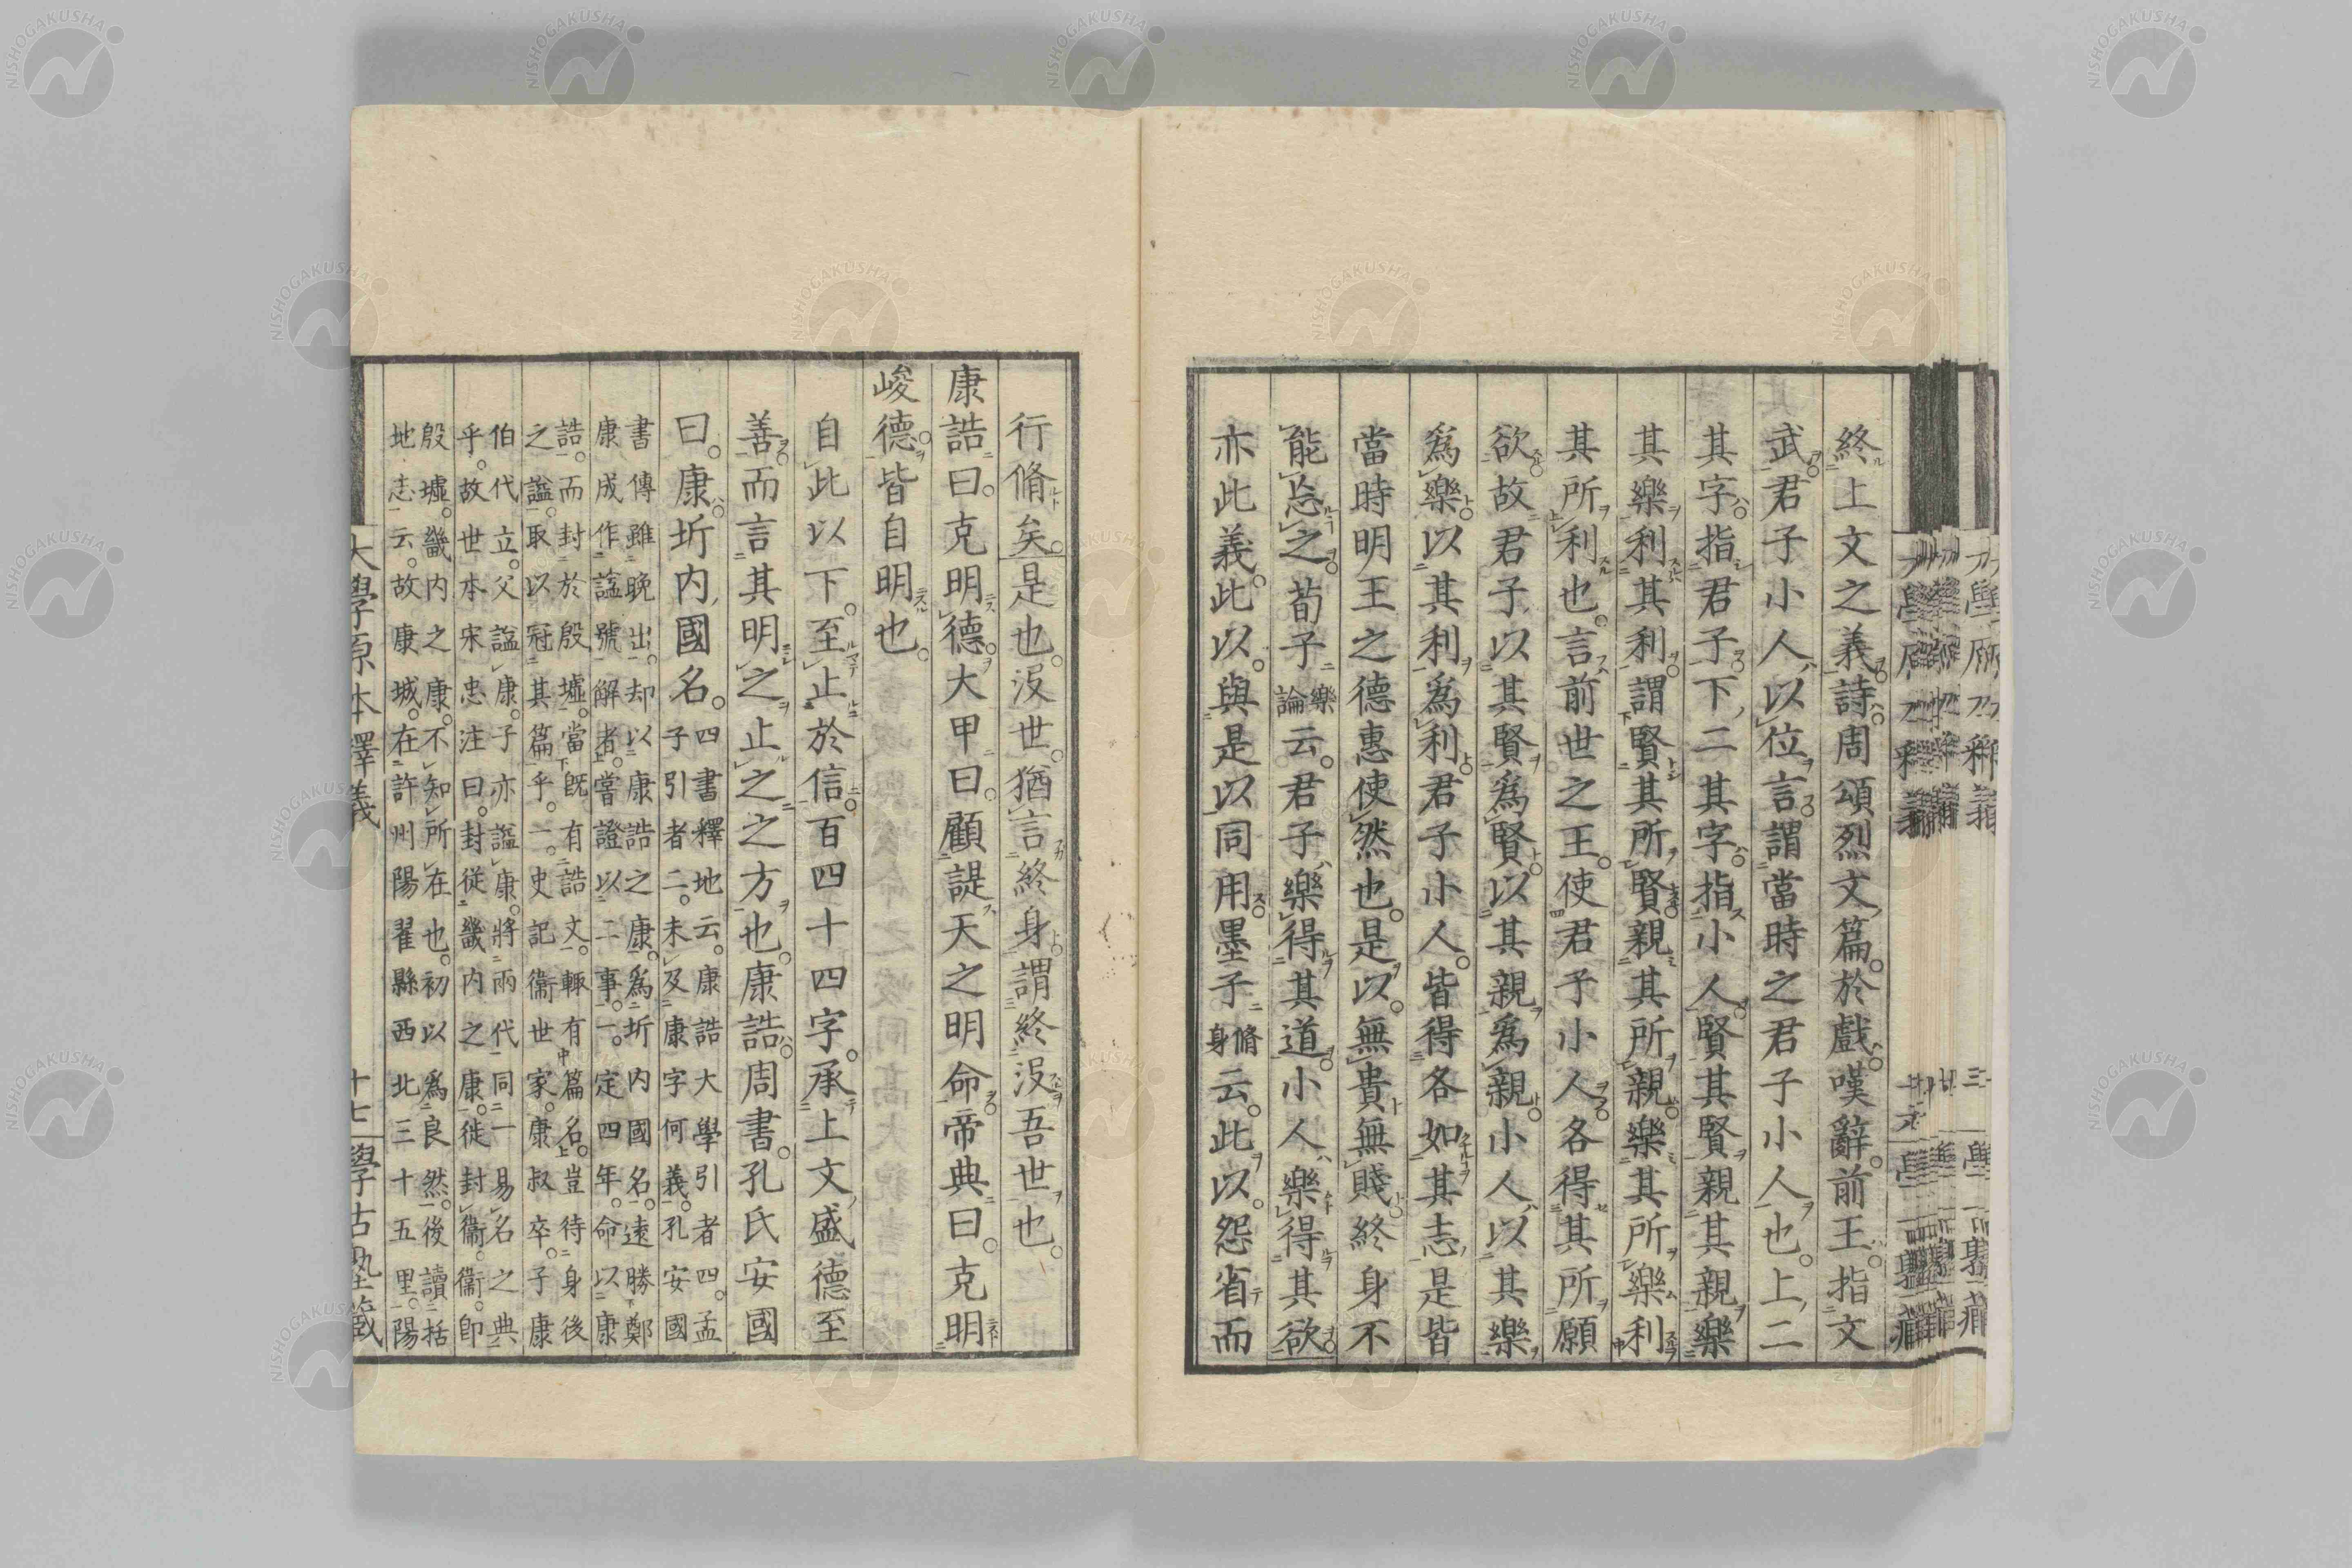 終上文之義。詩周頌烈文篇。於戲。嘆辭。前王。指文
武。君子小人。以位言。謂當時之君子小人也。上二
其字。指君子。下二其字。指小人。賢其賢親其親樂
其樂利其利。謂賢其所賢親其所親樂其所樂利
其所利也。言前世之王。使君子小人各得其所願
欲。故君子以其賢爲賢。以其親爲親。小人以其樂
爲樂。以其利爲利。君子小人。皆得各如其志。是皆
當時明王之德惠使然也。是以。無貴無賤。終身不
能忘之。荀子樂論云。君子樂得其道。小人樂得其欲
亦此義。此以。與是以同用。墨子脩身云。此以。怨省而
行脩矣。是也。沒世。猶言終身。謂終沒吾世也。
康誥曰。克明德。大甲曰。顧諟天之明命。帝典曰。克明
峻德。皆自明也。
自此以下。至止於信。百四十四字。承上文盛德至
善。而言其明之止之之方也。康誥。周書。孔氏安國
曰。康。圻内國名。四書釋地云。康誥大學引者四。孟
子引者二。未及康字何義。孔安國
書傳雖晚出。却以康誥之康。爲圻内國名。遠勝鄭
康成作謚號解者。嘗證以二事。一。定四年。命以康
誥。而封於殷墟。當既有誥文。輙有篇名。豈待身後
之謚。取以冠其篇乎。一。史記衞世家。康叔卒。子康
伯代立。父謚康。子亦謚康。將兩代同一易名之典
乎。故世本宋忠注曰。封從畿内之康。徙封衞。衞。卽
殷墟。畿内之康。不知所在也。初以爲良然。後讀括
地志云。故康城。在許州陽翟縣西北三十五里。陽
大學原本釋義
十七
學古塾藏